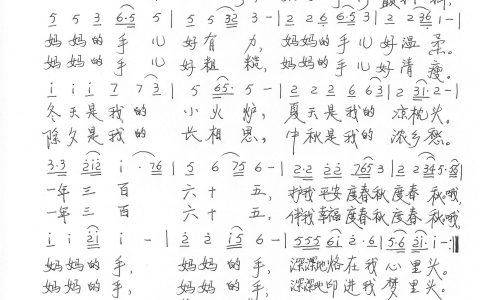 5 5 3 6·5 5 | 5 5 32 3 - | 2 2 6 6·5 3 | 2 2 36 1 - |
妈妈的手儿好有力，妈妈的手儿好温柔。
妈妈的手儿好粗糙，妈妈的手儿好清瘦。
i i i 7 7 3 | 5 65· 5 - | 2 2 2 6 6 3 | 2 31· 2 - |
冬天是我的小火炉，夏天是我的凉枕头。
除夕是我的长相思，中秋是我的浓乡愁。
3·3 212 i · 76 | 5 6 75 6 - | 2·2 2 2 765 3 | 2·2 345·
一年三百六十五，护我平安度春秋度春秋哦，
一年三百六十五，伴我幸福度春秋度春秋哦，
i i 2i i - | 2 2 i5 6 - | 555 6i 2·6 | 5·6 2i i - :||
妈妈的手，妈妈的手，深深地烙在我心里头。
妈妈的手，妈妈的手，深深地印进我梦里头。